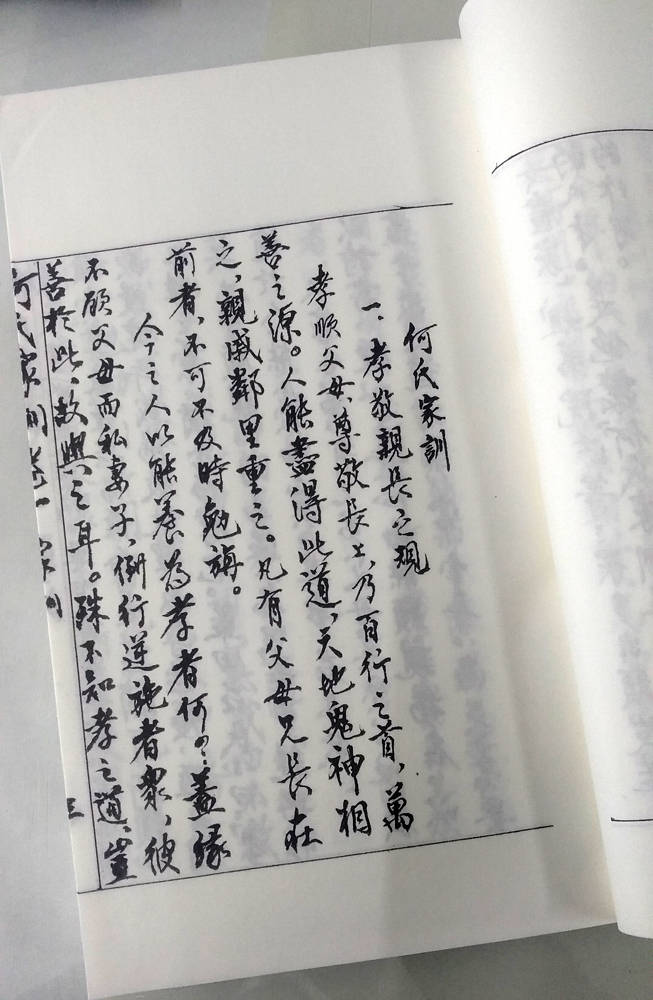 何氏家訓
一、孝敬親長之規
孝順父母，尊敬長上，乃百行之首，萬
善之源。人能盡得此道，天地鬼神相
之，親戚鄰里重之。凡有父母兄長在
前者，不可不及時勉旃。
今之人以能養為孝者何？蓋緣
不顧父母而私妻子，倒行逆施者衆，彼
善於此，故與之耳。殊不知孝之道，豈
何氏家訓卷一 家訓
三